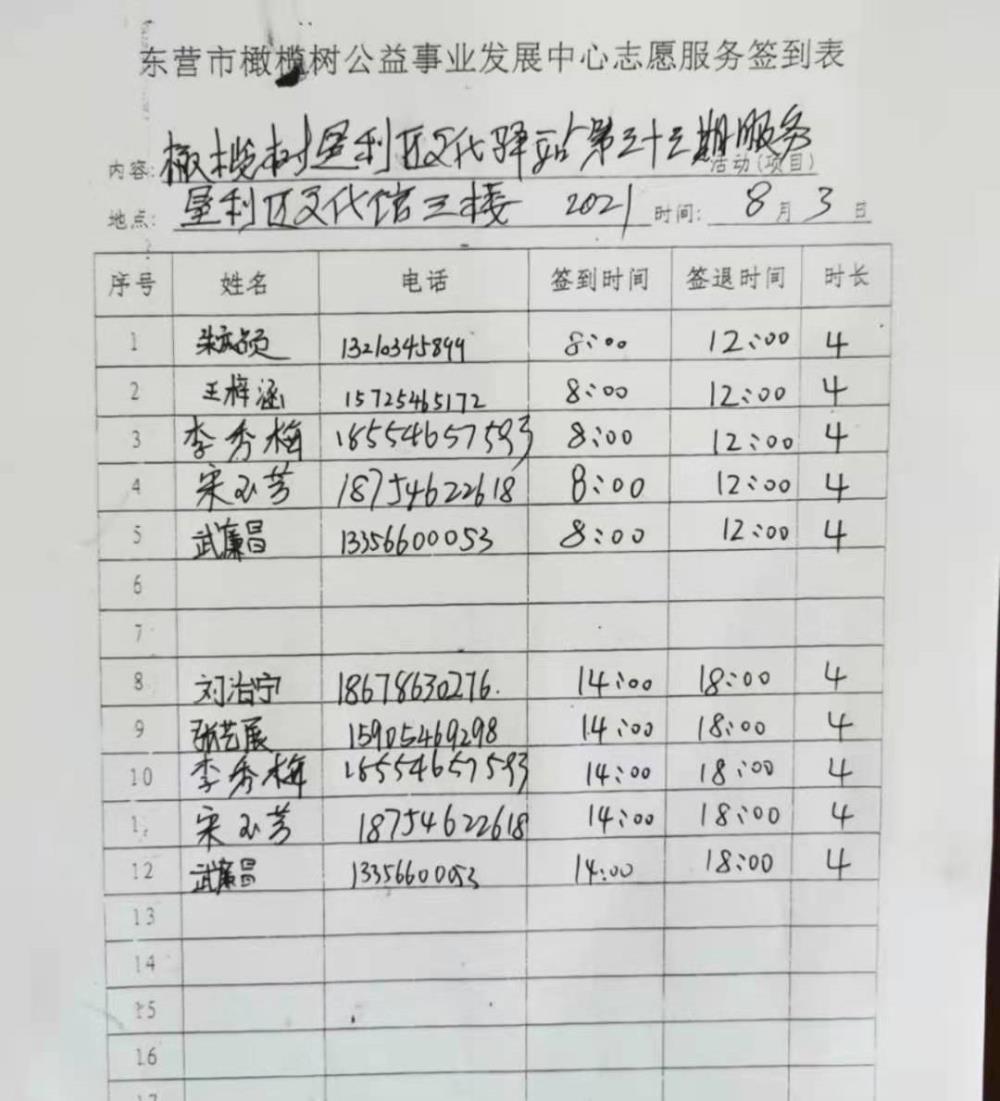 东营市橄榄树公益事业发展中心志愿服务签到表
内容: 橄榄树垦利区文化驿站第三十三期服务 活动(项目)
地点: 垦利区文化馆三楼 2021 时间: 8 月 3 日
序号 姓名 电话 签到时间 签退时间 时长
1 13210345899 8:00 12:00 4
2 王梓涵 15725465172 8:00 12:00 4
3 李秀梅 18554657593 8:00 12:00 4
4 宋玉芳 18754622618 8:00 12:00 4
5 武廉昌 13356600053 8:00 12:00 4
6
7
8 刘治宁 18678630276. 14:00 18:00 4
9 张艺展 15905469298 14:00 18:00 4
10 李秀梅 18554657593 14:00 18:00 4
1 宋玉芳 18754622618 14:00 18:00 4
12 武廉昌 13356600053 14:00 18:00 4
13
14
15
16
17